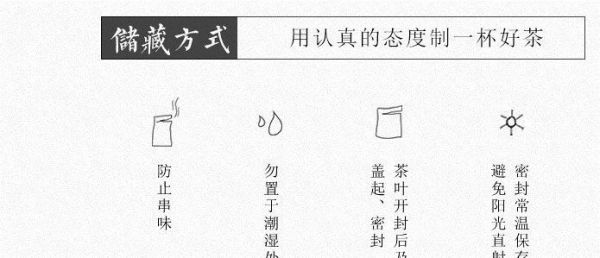 儲藏方式
用认真的态度制一杯好茶
防止串味
勿置于潮湿处
茶叶开封后及
盖起、密封
密封常温保存
避免阳光直射